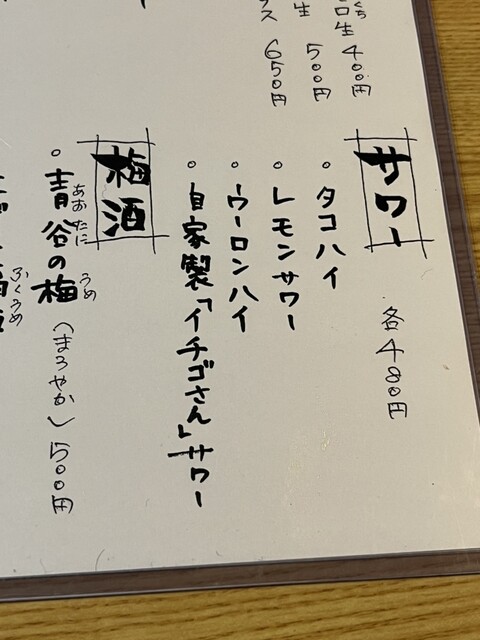 くち
口生 400円
生 500円
ス 650円
サワー 各480円
。タコハイ
。レモンサワー
。ウーロンハイ
。自家製「イチゴさん」サワー
梅酒
。青谷の梅(まろやか)500円
あおたに うめ
ふくうめ